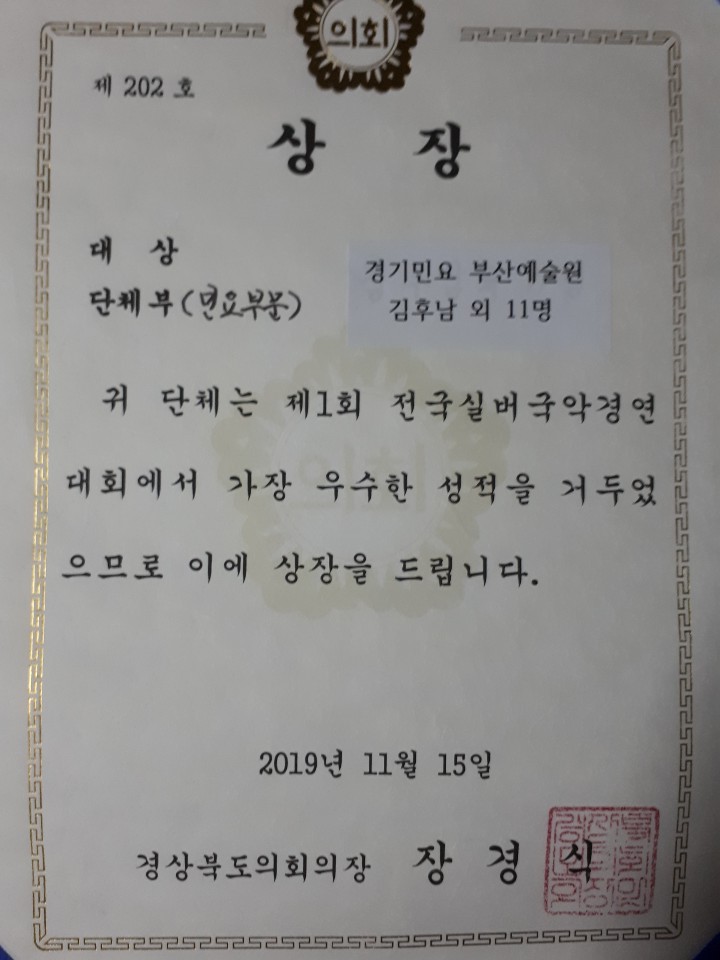 의회
제 202 호
상 장
대 상
단체부(민요부문)
경기민요 부산예술원
김후남 외 11명
귀 단체는 제1회 전국실버국악경연
대회에서 가장 우수한 성적을 거두었
으므로 이에 상장을 드립니다.
2019년 11월 15일
경상북도의회의장 장 경 식